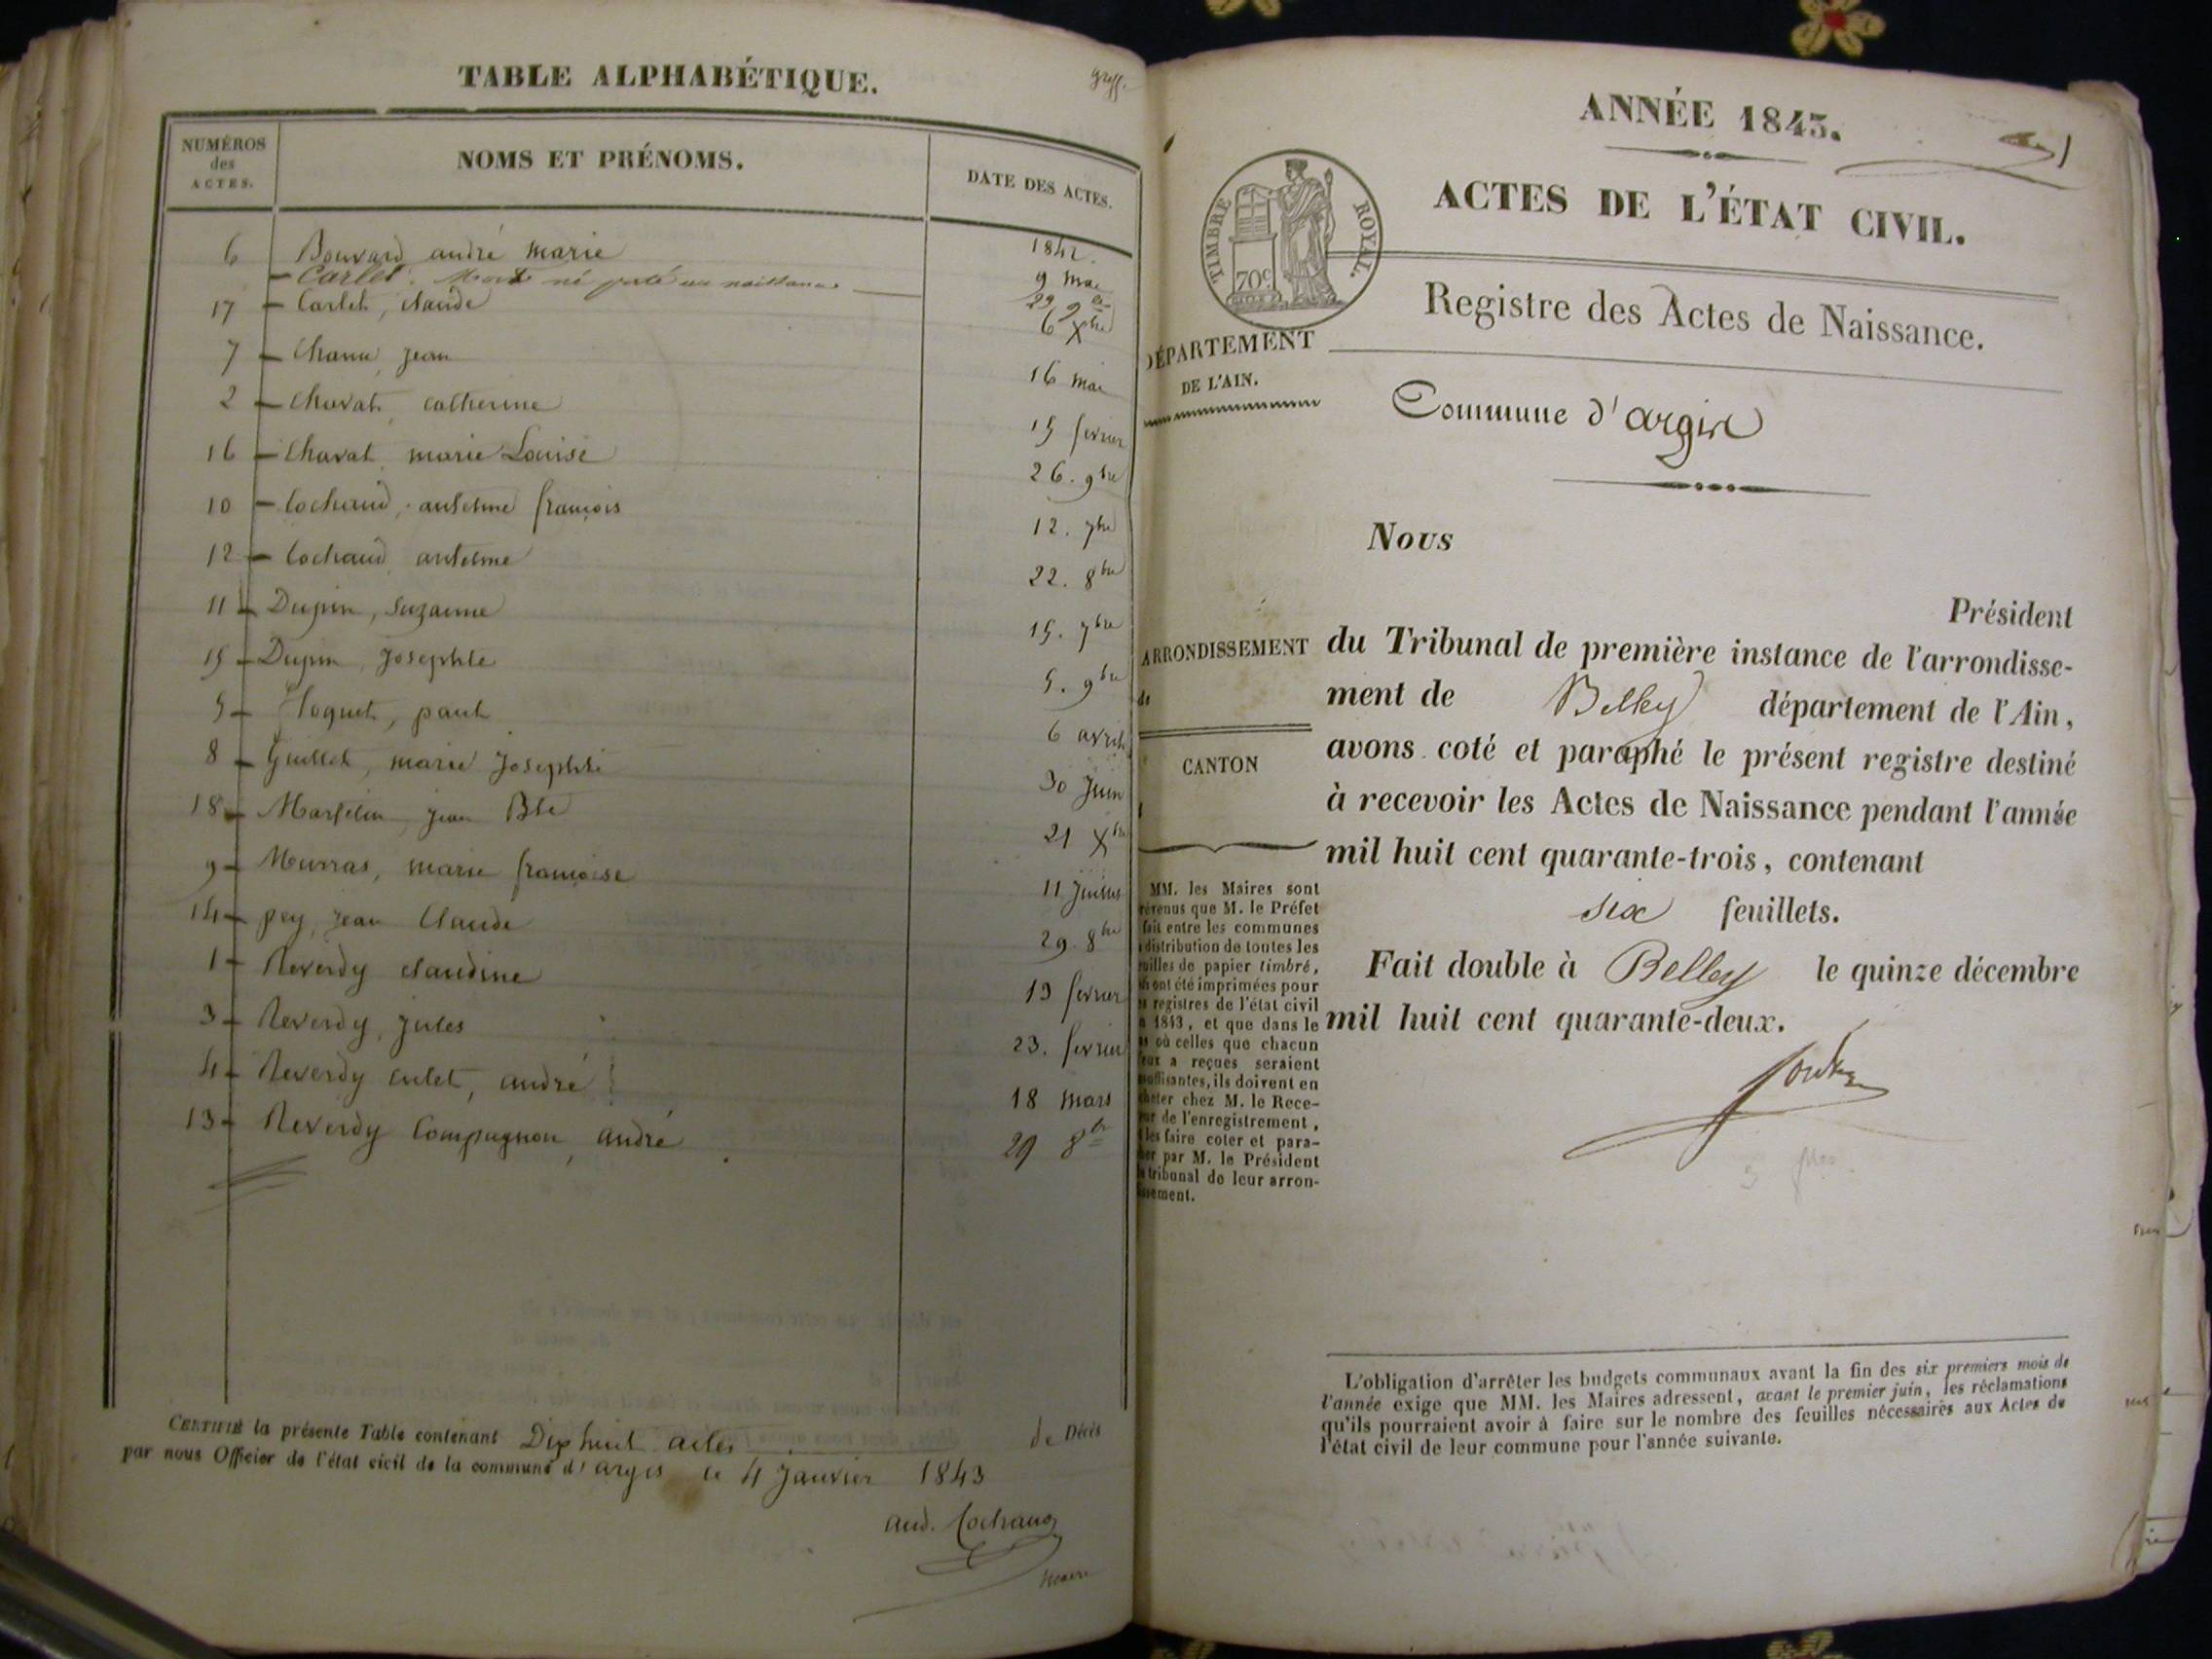 TABLE ALPHABÉTIQUE.
greff.
NUMÉROS des ACTES.
NOMS ET PRÉNOMS.
DATE DES ACTES.
1842.
6 Bouvard andré marie 9 mai
Carlet. Mort né porté aux naissances 29 9bre
17 Carlet, claude 6 Xbre
7 Chanu, jean 16 mai
2 Charat, catherine 15 fevrier
16 Charat, marie Louise 26. 9bre
10 Cochaud, antelme françois 12. 7bre
12 Cochaud antelme 22. 8bre
11 Dupin, Suzanne 15. 7bre
15 Dupin Josephte 5. 9bre
5 Floquet, paul 6 avril
8 Guillet, marie Josephte 30 Juin
18 jean Bte 21 Xbre
9 Murras, marie françoise 11 Juillet
14 pey, Jean Claude 29. 8bre
1 Reverdy claudine 13 fevrier
3 Reverdy, jules 23. fevrier
4 Reverdy culet, andré 18 mars
13 Reverdy Compagnon, andré 29 8bre
CERTIFIÉ la présente Table contenant Dix huit actes de Décès
par nous Officier de l'état civil de la commune d'argis le 4 Janvier 1843
and. Cochaud
maire
1
ANNÉE 1843.
ACTES DE L'ÉTAT CIVIL.
TIMBRE ROYAL.
70c
Registre des Actes de Naissance.
DÉPARTEMENT
DE L'AIN.
Commune d'argis
Nous
Président
ARRONDISSEMENT
de
du Tribunal de première instance de l'arrondisse-
ment de Belley département de l'Ain,
CANTON
avons coté et paraphé le présent registre destiné
à recevoir les Actes de Naissance pendant l'année
mil huit cent quarante-trois, contenant
six feuillets.
Fait double à Belley le quinze décembre
mil huit cent quarante-deux.
MM. les Maires sont
évenus que M. le Préfet
fait entre les communes
distribution de toutes les
uilles de papier timbré,
ont été imprimées pour
registres de l'état civil
1843, et que dans le
où celles que chacun
eux a reçues seraient
suffisantes, ils doivent en
heter chez M. le Rece-
ur de l'enregistrement,
les faire coter et para-
her par M. le Président
tribunal de leur arron-
ssement.
L'obligation d'arrêter les budgets communaux avant la fin des six premiers mois de
l'année exige que MM. les Maires adressent, avant le premier juin, les réclamations
qu'ils pourraient avoir à faire sur le nombre des feuilles nécessaires aux Actes de
l'état civil de leur commune pour l'année suivante.